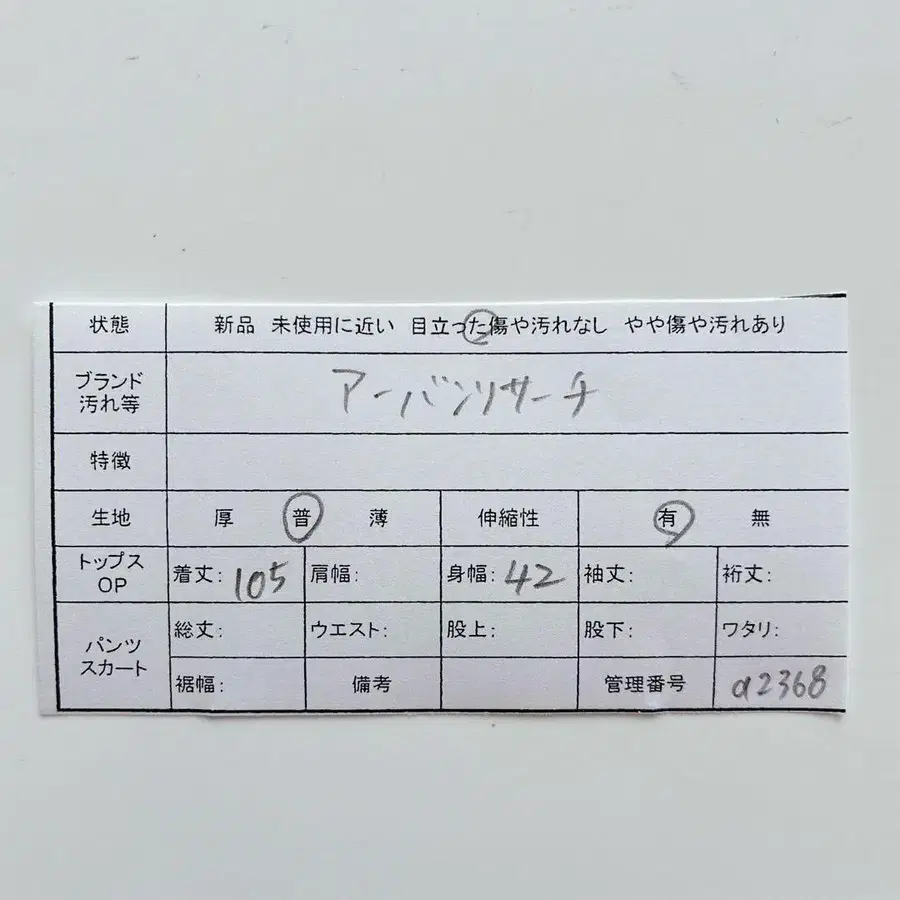 状態 新品 未使用に近い 目立った傷や汚れなし やや傷や汚れあり
ブランド
汚れ等
アーバンリサーチ
特徴
生地 厚 普 薄 伸縮性 有 無
トップス
OP
着丈: 105 肩幅: 身幅: 42 袖丈: 裄丈:
パンツ
スカート
総丈: ウエスト: 股上: 股下: ワタリ:
裾幅: 備考 管理番号 a2368